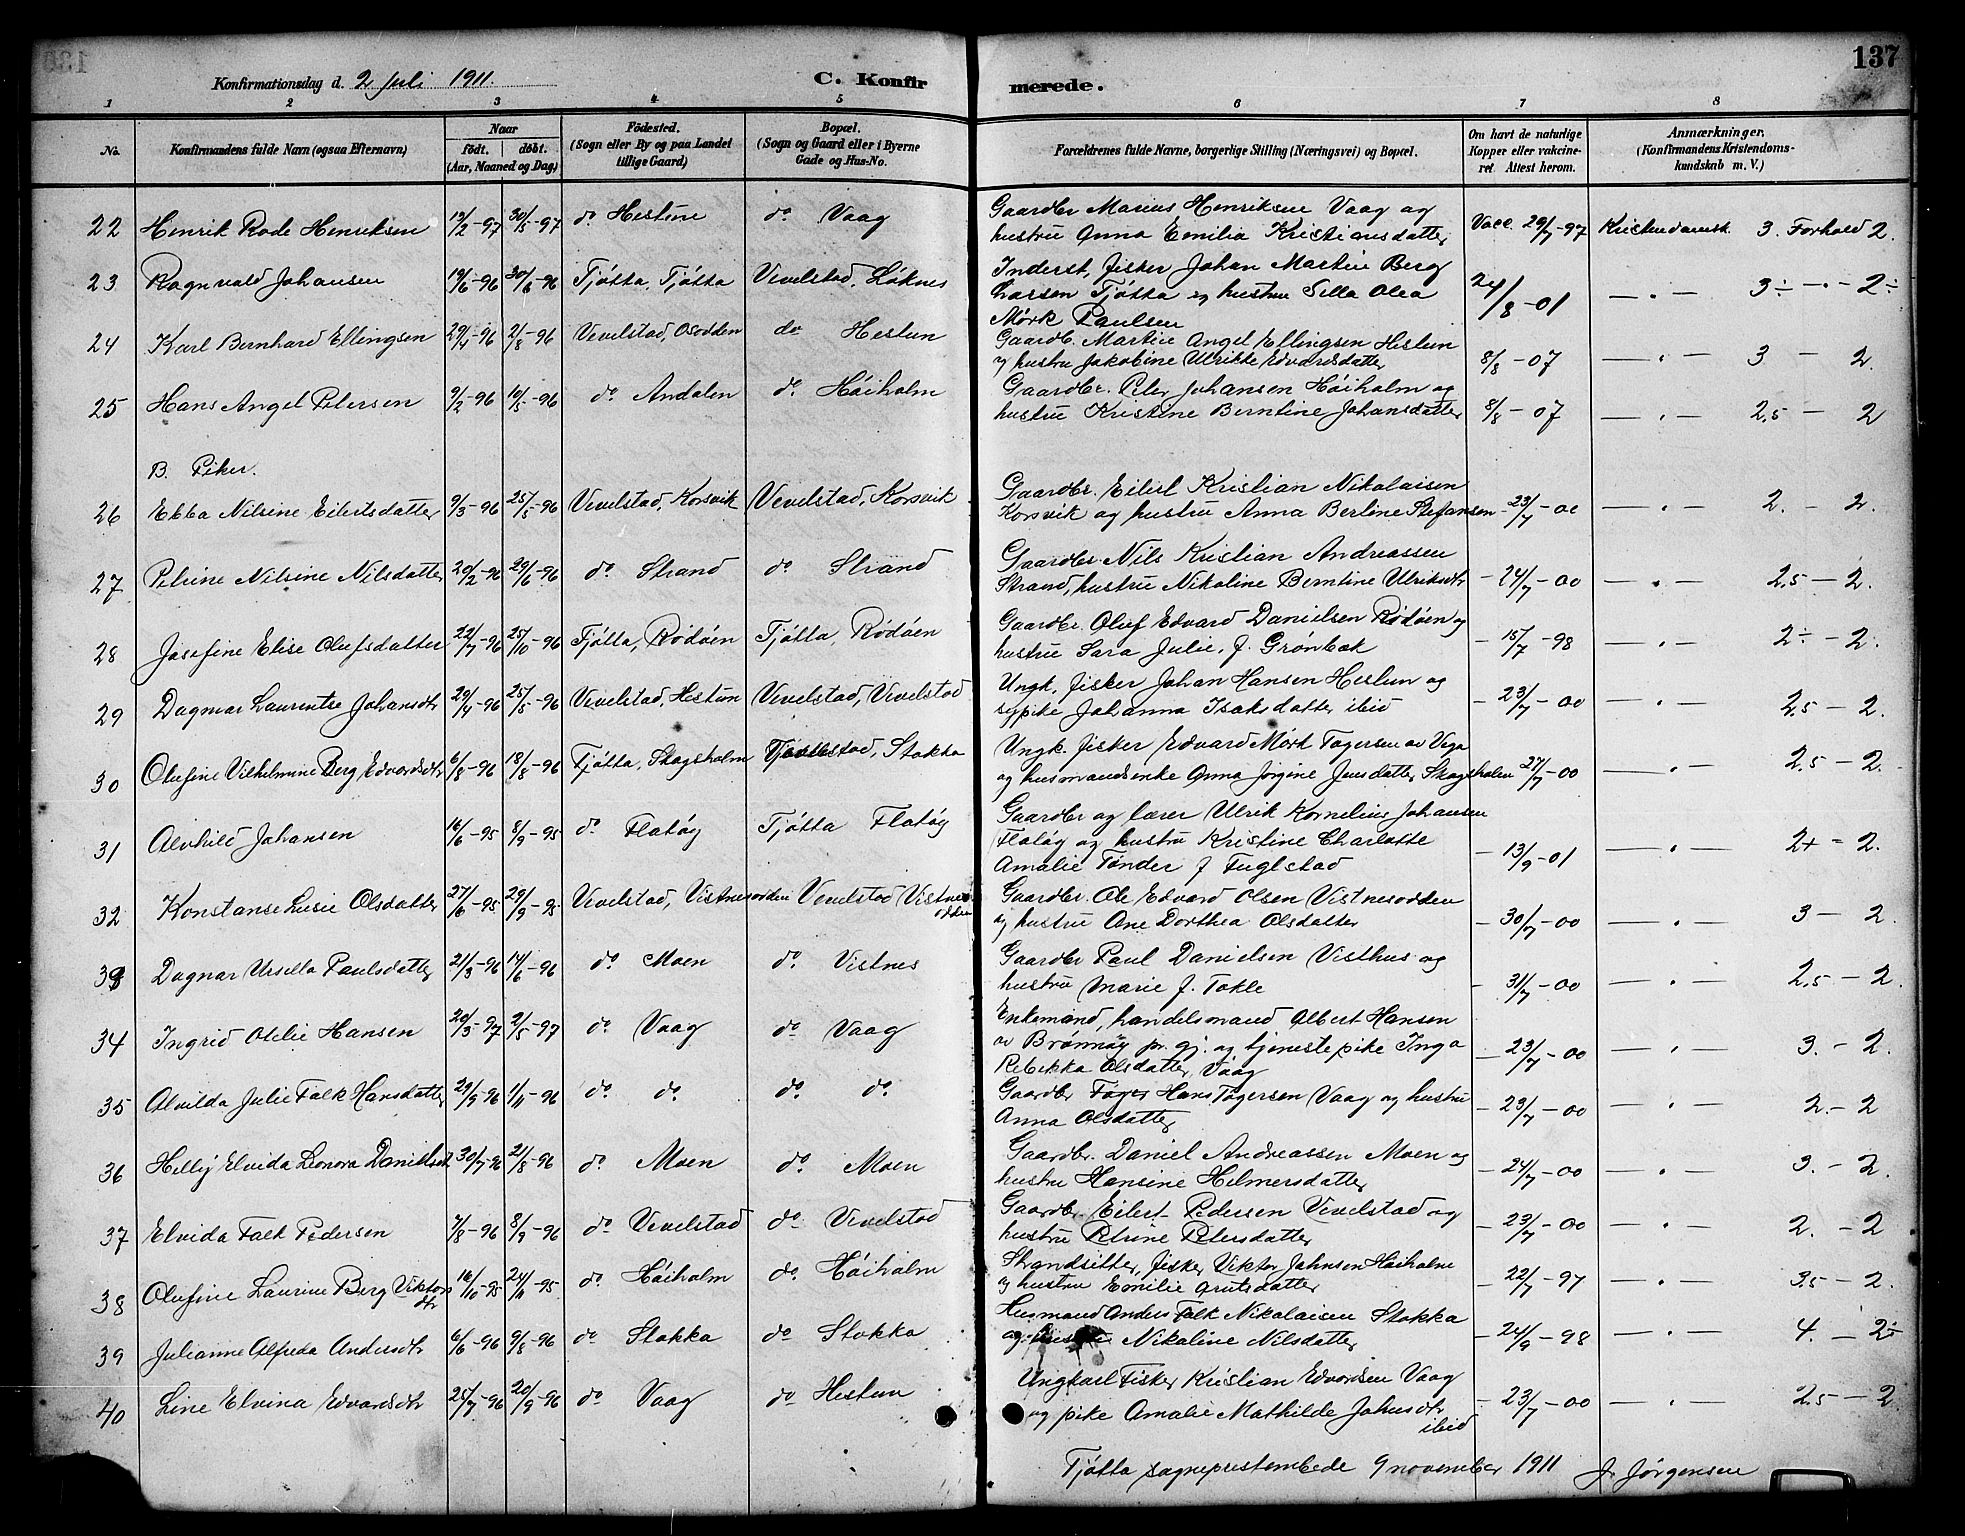 137
Konfirmationsdag d. 2 Juli 1911.
C. Konfirmerede.
1 2 3 4 5 6 7 8
No. Konfirmandens fulde Navn (ogsaa Efternavn) Naar født. døbt. (Aar, Maaned og Dag) Fødested. (Sogn eller By og paa Landet tillige Gaard) Bopæl. (Sogn og Gaard eller i Byerne Gade og Hus-No. Forældrenes fulde Navne, borgerlige Stilling (Næringsvei) og Bopæl. Om havt de naturlige Kopper eller vakcineret. Attest herom. Anmærkninger. (Konfirmandens Kristendomskundskab m. V.)
22 Henrik Rode Henriksen 19/2-97 30/5-97 do Hestun do Vaag Gaardbr Marius Henriksen Vaag og
hustru Anna Emilia Kristiansdatter Vacc. 29/7-97 Kristendomsk. 3. Forhold 2.
23 Ragnvald Johansen 19/6-96 30/8-96 Tjøtta, Tjøtta Vevelstad, Løknes Inderst, fisker Johan Martin Berg
Larsen Tjøtta og hustru Silla Olea
Mørk Paulsen 24/8-01 — " — 3÷ - " - 2÷
24 Karl Bernhard Ellingsen 29/4-96 2/8-96 Vevelstad, Osodden do Hestun Gaardb. Martin Angel Ellingsen Hestun
og hustru Jakobine Ulrikke Edvardsdatter 8/8-07 — " — 3 - 2.
25 Hans Angel Petersen 9/2-96 10/5-96 do Andalen do. Høiholm Gaardbr. Peter Johansen Høiholm og
hustru Kristine Berntine Johansdatter 8/8-07 — " — 2,5 — 2
B. Piker.
26 Ebba Nilsine Eilertsdatter 9/3-96 25/5-96 Vevelstad, Korsvik Vevelstad, Korsvik Gaardbr. Eilert Kristian Nikolaisen
Korsvik og hustru Anna Berline Stefansen - 23/7-00 — " — 2. - 2.
27 Petrine Nilsine Nilsdatter 20/2-96 29/6-96 do Strand do Strand Gaardbr Nils Kristian Andreassen
Strand, hustru Nikoline Berntine Ulriksdtr - 24/7-00 — " — 2,5 — 2.
28 Josefine Elise Olufsdatter 22/7-96 25/10-96 Tjøtta, Rødøen Tjøtta, Rødøen Gaardbr. Oluf Edvard Danielsen Rødøen og
hustru Sara Julie, f. Grønbæk - 15/7-98 — " — 2÷ - 2.
29 Dagmar Laurentse Johansdtr 29/4-96 25/5-96 Vevelstad, Hestun Vevelstad, Vevelstad Ungk. fisker Johan Hansen Hestun og
sypike Johanna Isaksdatter ibid - 23/7-00 — " — 2,5 — 2.
30 Olufine Vilhelmine Berg Edvardsdtr 6/8-96 18/8-96 Tjøtta, Skogsholm Stokka Ungk. fisker Edvard Mørk Tøgersen av Vega
og husmandsenke Anna Jørgine Jensdatter Skogsholm 27/7-00 — " — 2.5 — 2.
31 Alvhild Johansen 16/6-95 8/9-95 do Flatøy Tjøtta Flatøy Gaardbr og lærer Ulrik Kornelius Johansen
Flatøy og hustru Kristine Charlotte
Amalie Tønder f Fuglstad - 13/9-01 — " — 2+ - 2.
32 Konstanse Lusie Olsdatter 27/6-95 29/9-95 Vevelstad, Vistnesodden Vevelstad Vistnesodden Gaardbr. Ole Edvard Olsen Vistnesodden
og hustru Ane Dorthea Olsdatter - 30/7-00 — " — 3 — 2.
33 Dagmar Ursella Paulsdatter 21/3-96 14/6-96 do. Moen do. Vistnes Gaardbr Paul Danielsen Visthus og
hustru Marie f. Tokle - 31/7-00 — " — 2,5 — 2.
34 Ingrid Otilie Hansen 20/3-97 2/5-97 do Vaag do Vaag Enkemand, handelsmand Albert Hansen
av Brønnøy pr. gj. og tjenestepike Inga
Rebekka Olsdatter, Vaag - 23/7-00 — " — 3. - 2.
35 Alvilda Julie Falk Hansdatter 29/9-96 1/11-96 do do. do do. Gaardbr Hans Tøgersen Vaag og hustru
Anna Olsdatter - 23/7-00 — " — 2. - 2
36 Helly Elvida Leonora Danielsdtr 30/7-96 2/8-96 do. Moen do. Moen Gaardbr. Daniel Andreassen Moen og
hustru Hansine Helmersdatter - 24/7-00 — " — 3. - 2.
37 Elvida Falk Pedersen 7/8-96 8/9-96 do Vevelstad do Vevelstad Gaardbr. Eilert Pedersen Vevelstad og
hustru Petrine Petersdatter - 23/7-00 — " — 2. - 2
38 Olufine Laurine Berg Viktorsdtr 16/10-95 24/11-95 do. Høiholm do. Høiholm Strandsitter, fisker Viktor Johnsen Høiholm
og hustru Emilie Arntsdatter - 22/7-97 — " — 3.5 — 2.
39 Julianne Alfreda Andersdtr 6/6-96 9/8-96 do Stokka do Stokka Husmand Anders Falk Nikolaisen Stokka
og hustru Nikoline Nilsdatter - 24/9-98 — " — 4. — 2÷
40 Line Elvina Edvardsdtr 25/7-96 20/9-96 do Vaag do Hestun Ungkarl Fisker Kristian Edvardsen Vaag
og pike Amalie Mathilde Johnsdtr
ibid - 23/7-00 — " — 2.5 — 2
Tjøtta sogneprestembede 9 november 1911 J. Jørgensen